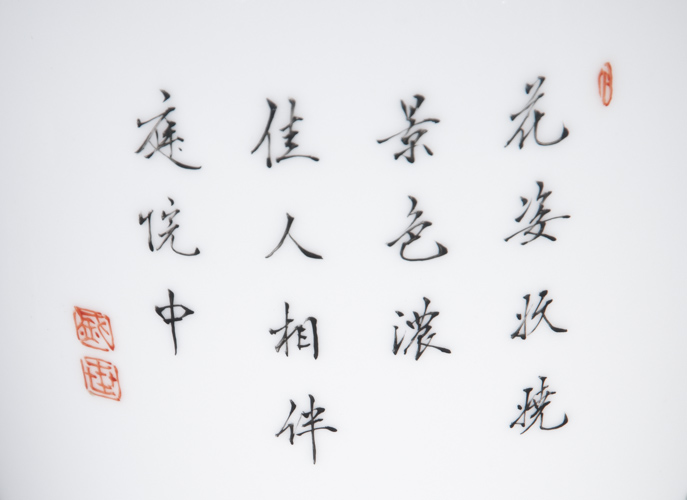 花姿妖嬈
景色濃
佳人相伴
庭院中